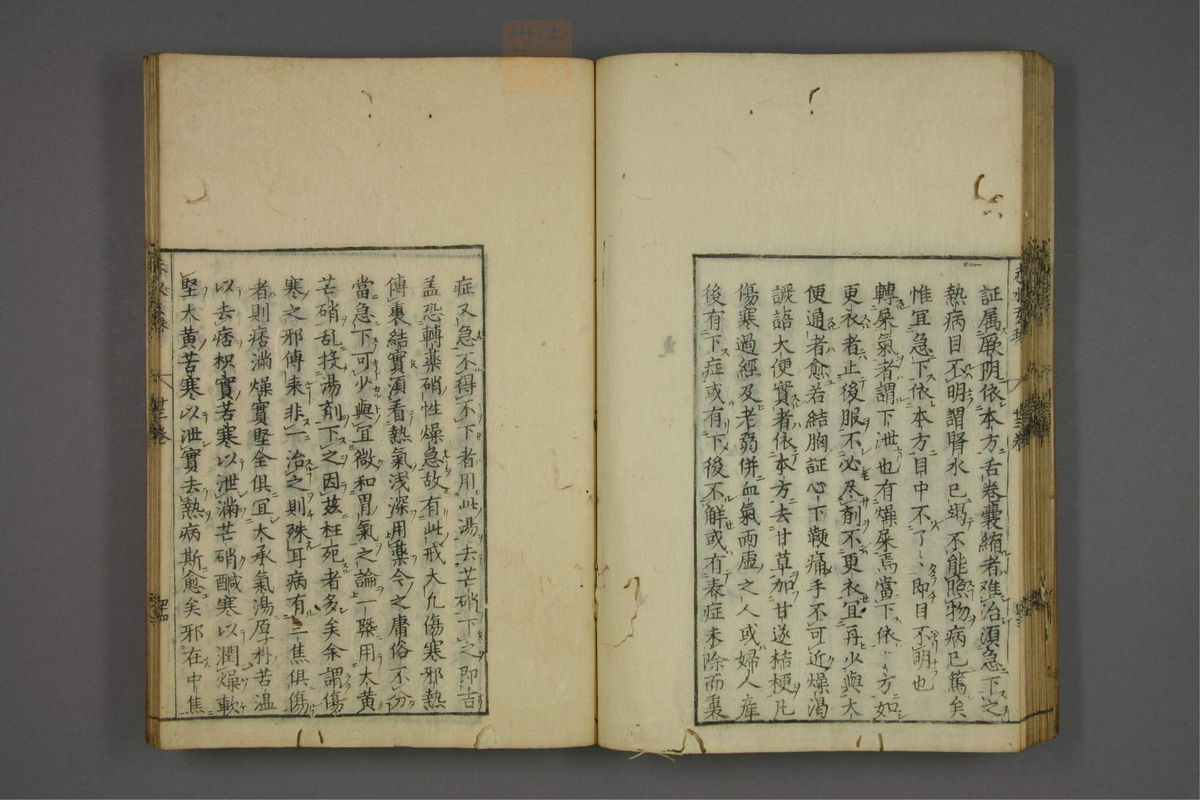 証属厥阴依本方舌卷囊縮者难治須急下之
熱病目不明謂腎水已竭不能照物病已篤矣
惟宜急下依本方目中不了〻即目不明也
轉屎氣者謂下泄也有燥屎焉當下依〻方如
更衣者止後服不必尽剤不更衣宜再少與大
便通者愈若結胸証心下鞕痛手不可近燥渴
譫語大便實者依本方去甘草加甘遂桔梗凡
傷寒過經及老弱併血氣兩虛之人或婦人產
後有下症或有下後不解或有表症未除而裏
症又急不得不下者用此湯去芒硝下之即吉
盖恐轉藥硝性燥急故有此戒大凡傷寒邪熱
傳裏結實須看熱氣浅深用藥今之庸俗不分
當急下可少與宜微和胃氣之論一槩用大黃
芒硝乱投湯剤下之因茲枉死者多矣余謂傷
寒之邪傳来非一治之則殊耳病有三焦俱傷
者則痞滿燥實堅全俱宜大承氣湯厚朴苦温
以去痞枳實苦寒以泄滿芒硝鹹寒以潤燥軟
堅大黃苦寒以泄實去熱病斯愈矣邪在中焦
廿三卷
廿三卷